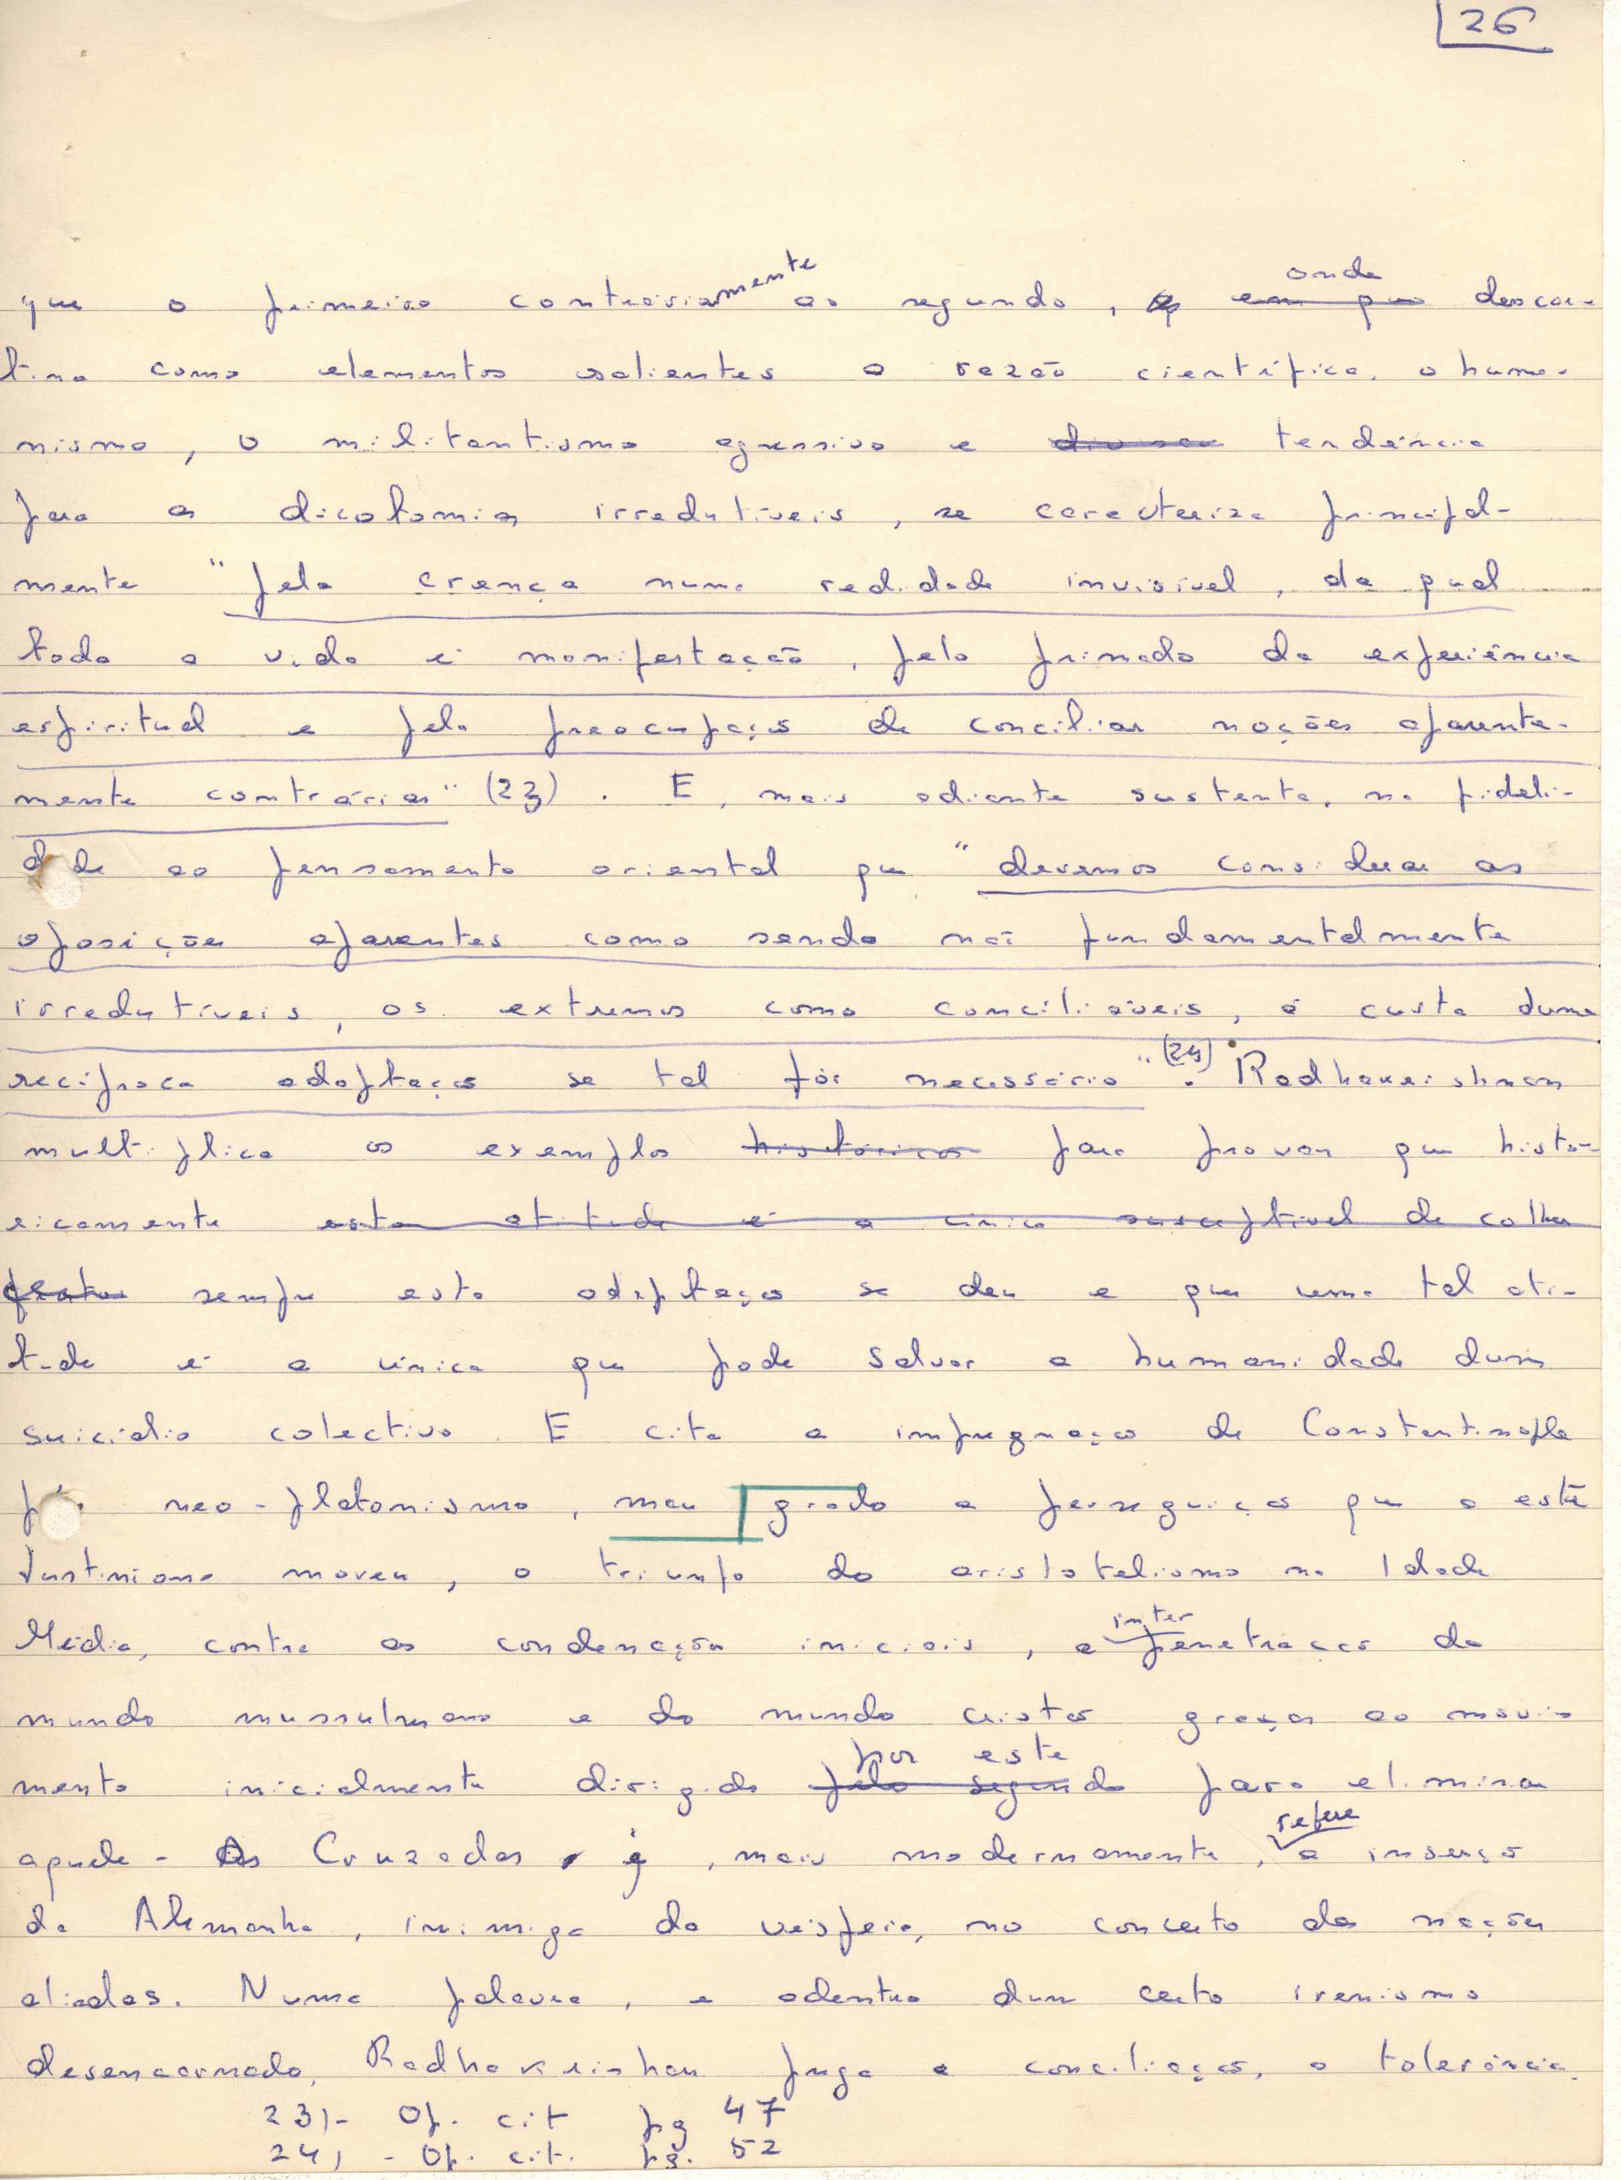 26
que o primeiro contrariamente ao segundo, onde descor-
tina como elementos salientes a razão científica, o huma-
nismo, o militantismo agressivo e tendência
para as dicotomias irredutíveis, se caracteriza principal-
mente "pela crença numa realidade invisível, da qual
toda a vida é manifestação, pelo primado da experiência
espiritual e pela preocupação de conciliar noções aparente-
mente contrárias" (23). E, mais adiante sustenta, na fideli-
dade ao pensamento oriental que "devemos considerar as
oposições aparentes como sendo não fundamentalmente
irredutíveis, os extremos como conciliáveis, à custa duma
recíproca adaptação se tal fôr necessário" (24). Radhakrishnan
multiplica os exemplos históricos para provar que histo-
ricamente esta atitude é a única susceptível de colher
frutos sempre esta adaptação se deu e que uma tal ati-
tude é a única que pode salvar a humanidade dum
suicídio colectivo. E cita a impregnação de Constantinopla
neo-platonismo, mau grado a perseguição que a este
Justiniano moveu, o triunfo do aristotelismo na Idade
Média, contra as condenações iniciais, a interpenetração do
mundo mussulmano e do mundo cristão graças ao movi-
mento inicialmente dirigido pelo segundo por este para eliminar
aquele - As Cruzadas, e, mais modernamente, refere a inserção
da Alemanha, inimiga da véspera, no concerto das nações
aliadas. Numa palavra, e adentro dum certo irenismo
desencarnado, Radhakrishnan prega a conciliação, a tolerância.
23) - Op. cit pg 47
24) - Op. cit. pg. 52